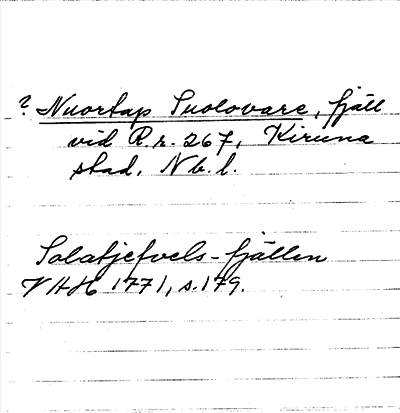 ? Nuortap Suolovare, fjäll
vid R.r. 267, Kiruna
stad, Nb. l.
Solatjefvels-fjällen
VAH 1771, s. 179.